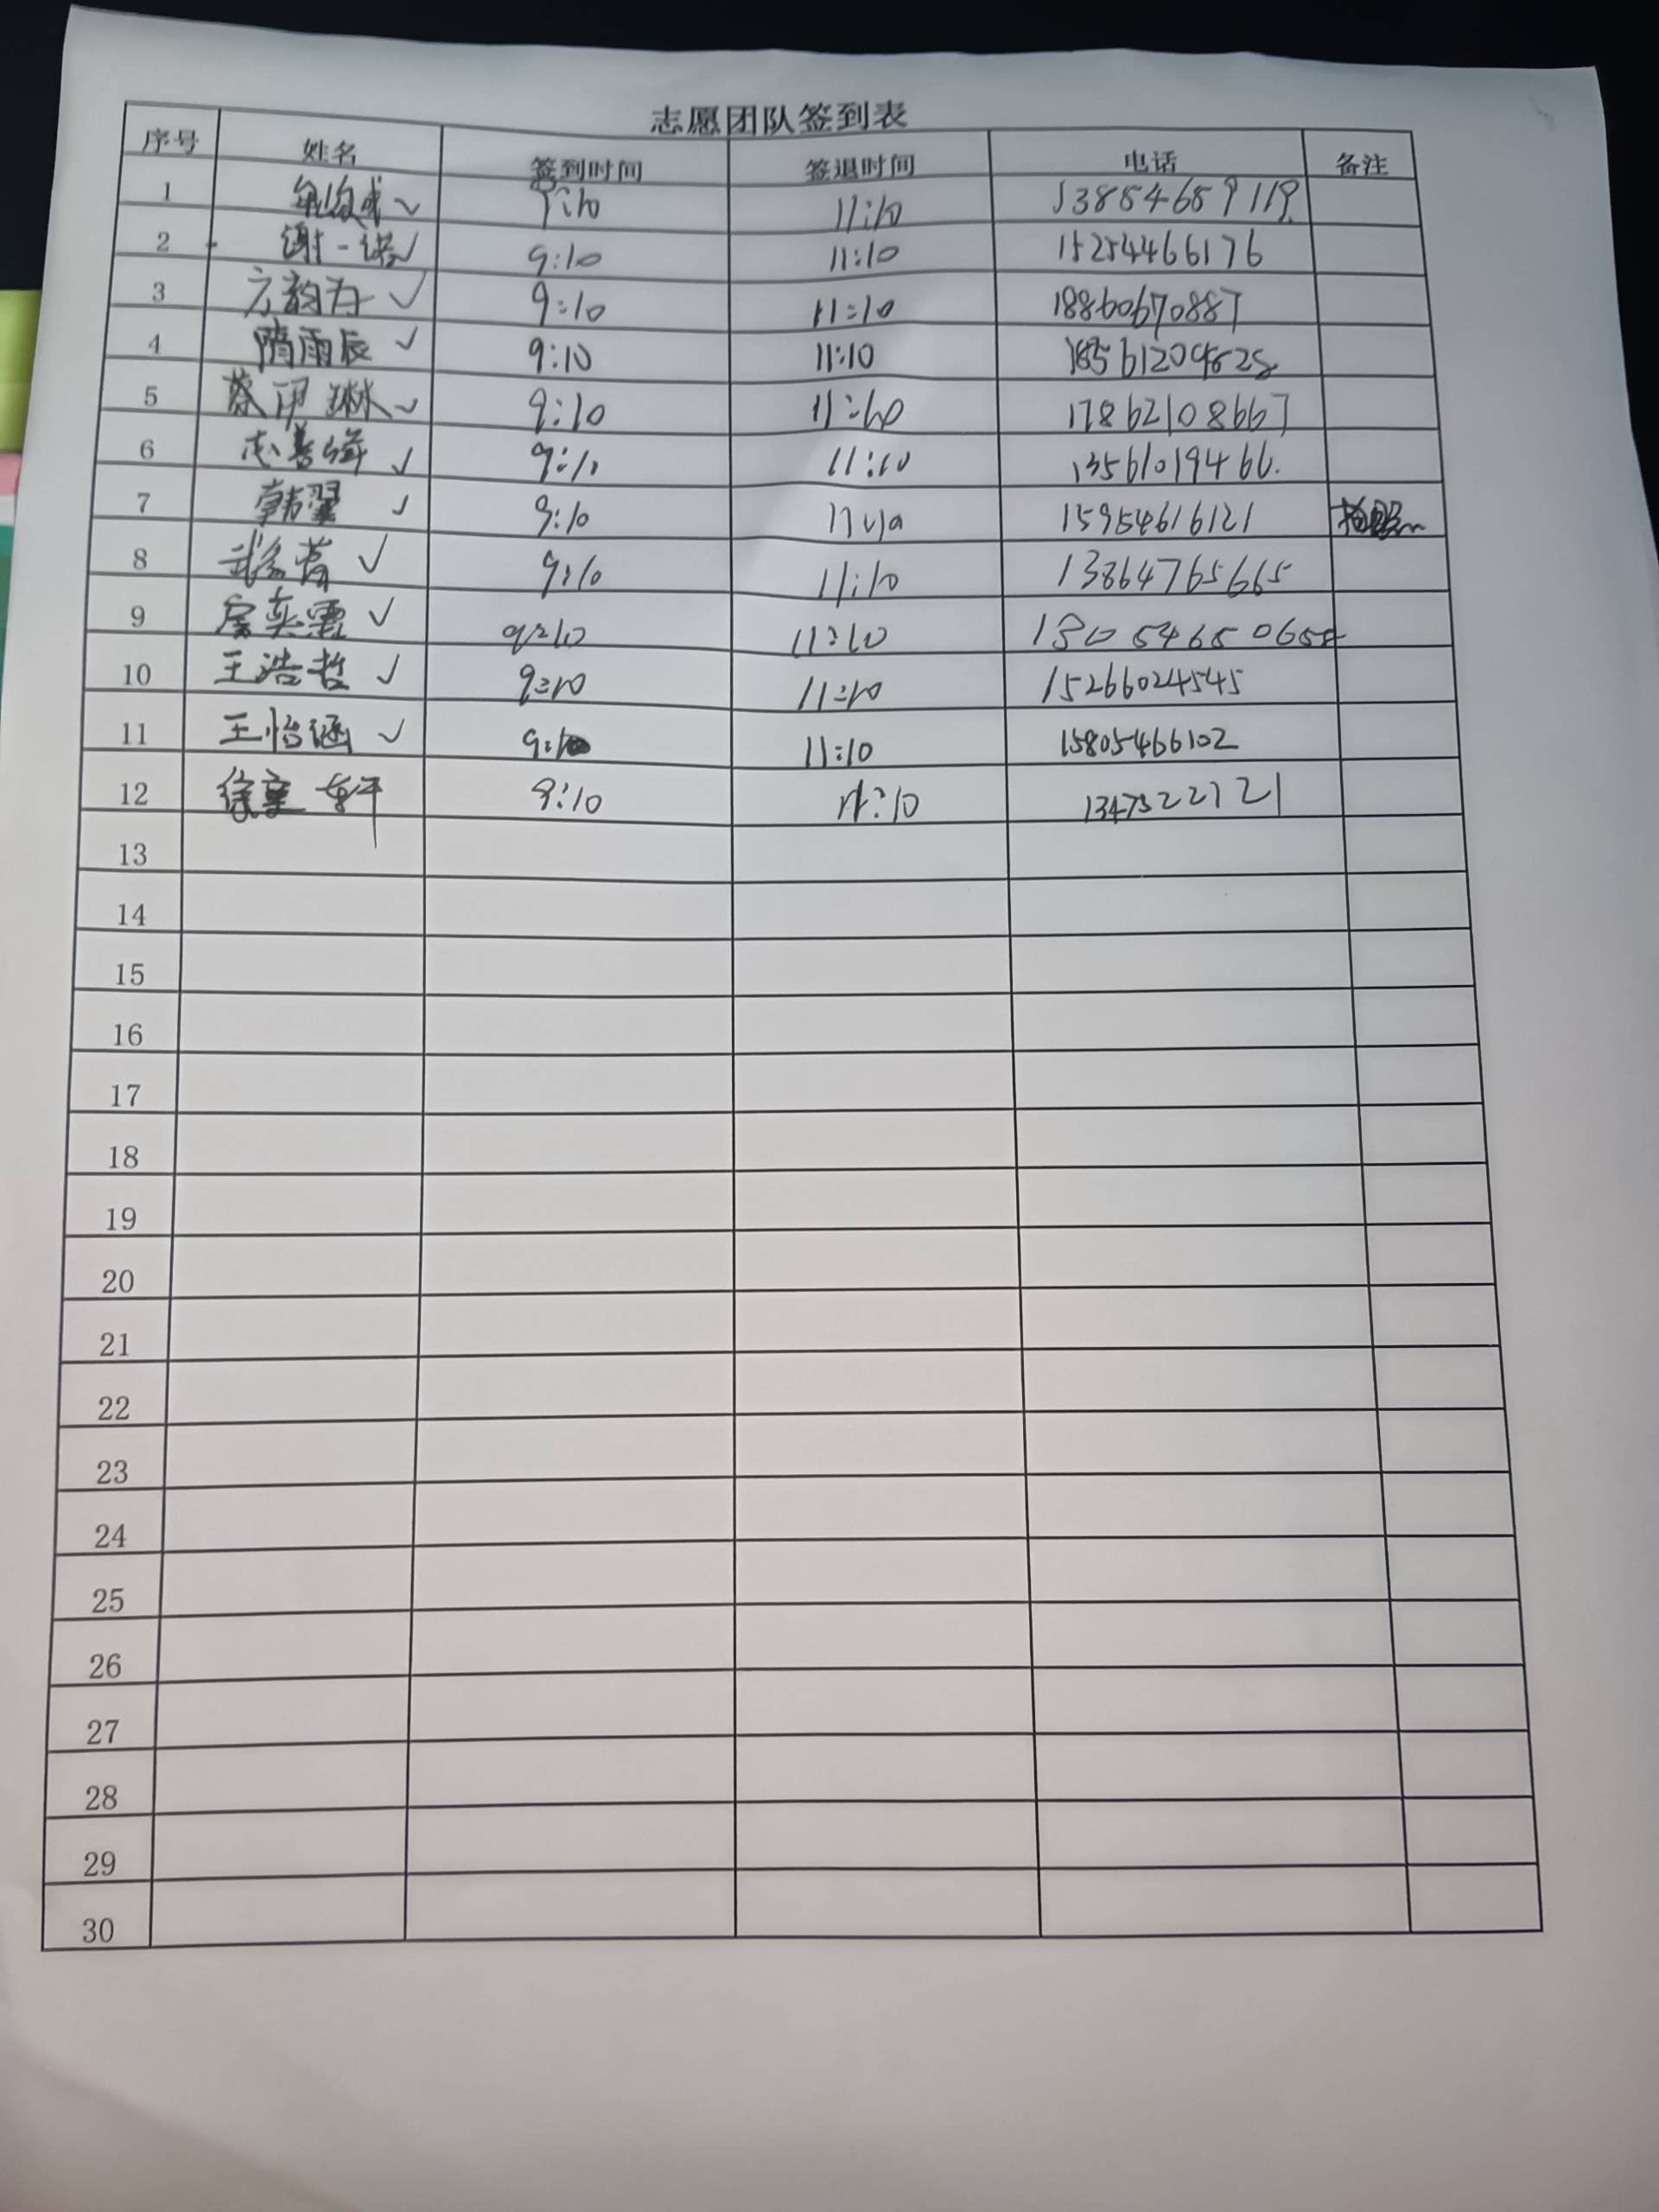 志愿团队签到表
序号 姓名 签到时间 签退时间 电话 备注
1 9:10 11:10 13854659119
2 谢一诺✓ 9:10 11:10 15254466176
3 方韵为✓ 9:10 11:10 18860670887
4 隋雨辰✓ 9:10 11:10
5 蔡伊琳✓ 9:10 11:10 17862108667
6 9:10 11:10 13561019466
7 韩翼✓ 9:10 11:10 15954616121
8 ✓ 9:10 11:10 13864765665
9 ✓ 9:10 11:10
10 王浩哲✓ 9:10 11:10 15266024545
11 王怡涵✓ 9:10 11:10 15805466102
12 徐 9:10 11:10 13475221721
13
14
15
16
17
18
19
20
21
22
23
24
25
26
27
28
29
30